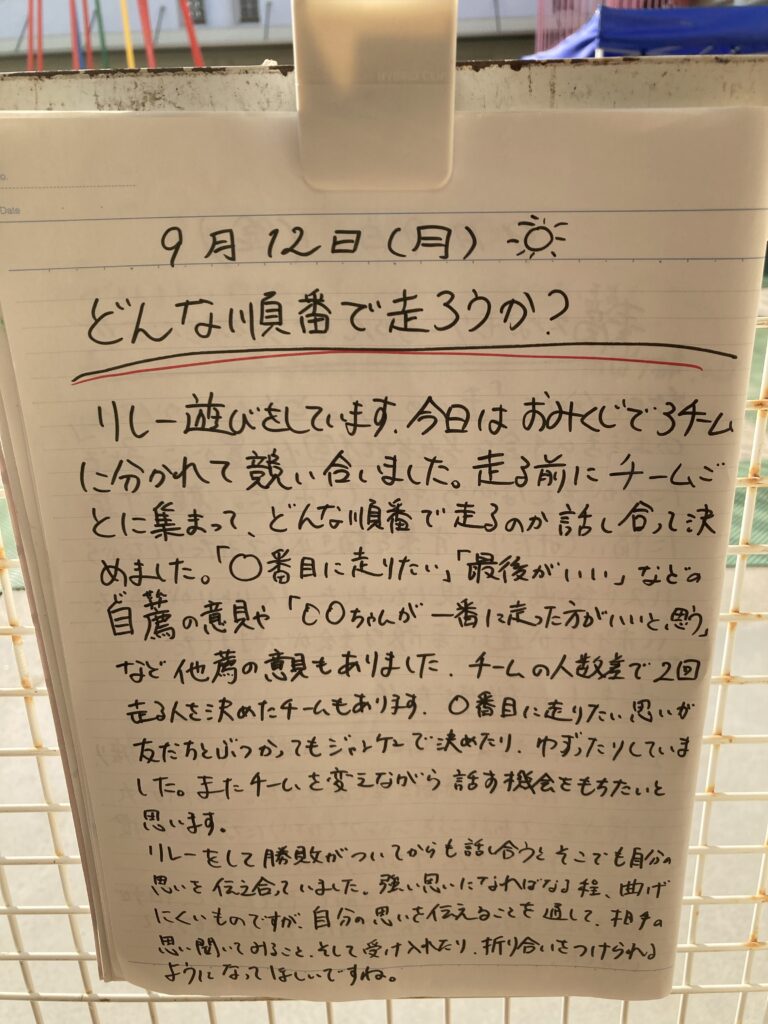 Date
9月12日(月)
どんな順番で走ろうか?
リレー遊びをしています。今日はおみくじで3チーム
に分かれて競い合いました。走る前にチームご
とに集まって、どんな順番で走るのか話し合って決
めました。「〇番目に走りたい」「最後がいい」などの
自薦の意見や「〇〇ちゃんが一番に走った方がいいと思う」
など他薦の意見もありました。チームの人数差で2回
走る人を決めたチームもあります。〇番目に走りたい思いが
友だちとぶつかってもジャンケンで決めたり、ゆずったりしていま
した。またチームを変えながら話す機会をもちたいと
思います。
リレーをして勝敗がついてからも話し合うとそこでも自分の
思いを伝え合っていました。強い思いになればなる程、曲げ
にくいものですが、自分の思いを伝えることを通して、相手の
思い聞いてみること、そして受け入れたり、折り合いをつけられる
ようになってほしいですね。